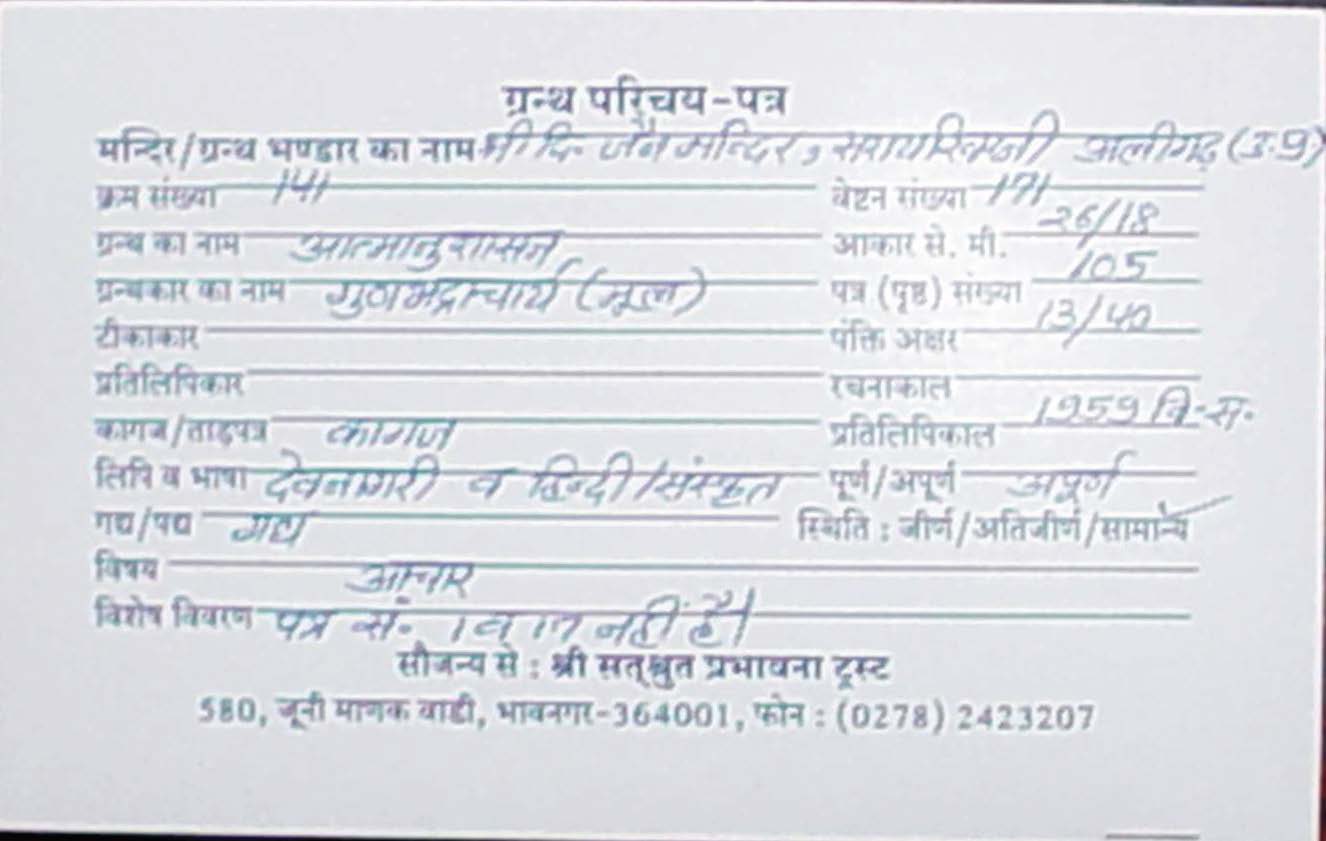 ग्रन्थ परिचय-पत्र
मन्दिर/ग्रन्थ भण्डार का नाम श्री दि. जैन मन्दिर, सराय अलीगढ़ (उ.प्र)
क्रम संख्या 141 वेष्टन संख्या 171
ग्रन्थ का नाम आत्मानुशासन आकार से. मी. 26/18
ग्रन्थकार का नाम गुणभद्राचार्य (मूल) पत्र (पृष्ठ) संख्या 105
टीकाकार पंक्ति अक्षर 13/40
प्रतिलिपिकार रचनाकाल
कागज/ताड़पत्र कागज प्रतिलिपिकाल 1959 वि.स.
लिपि व भाषा देवनागरी व हिन्दी/संस्कृत पूर्ण/अपूर्ण अपूर्ण
गद्य/पद्य गद्य स्थिति : जीर्ण/अतिजीर्ण/सामान्य
विषय आचार
विशेष विवरण पत्र सं. 1 व 17 नहीं है।
सौजन्य से : श्री सत्श्रुत प्रभावना ट्रस्ट
580, जूनी माणक वाडी, भावनगर-364001, फोन : (0278) 2423207